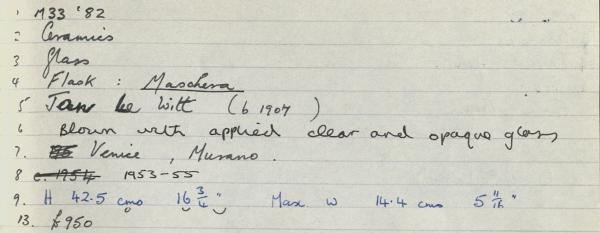 1 M33 '82
2 Ceramics
3 Glass
4 Flask : Maschera
5 Jan Le Witt (b 1907 )
6 Blown with applied clear and opaque glass
7. Venice , Murano .
8 c. 1954 1953-55
9. H 42.5 cms 16 3/4 " Max. W 14.4 cms 5 11/16 "
13. £950